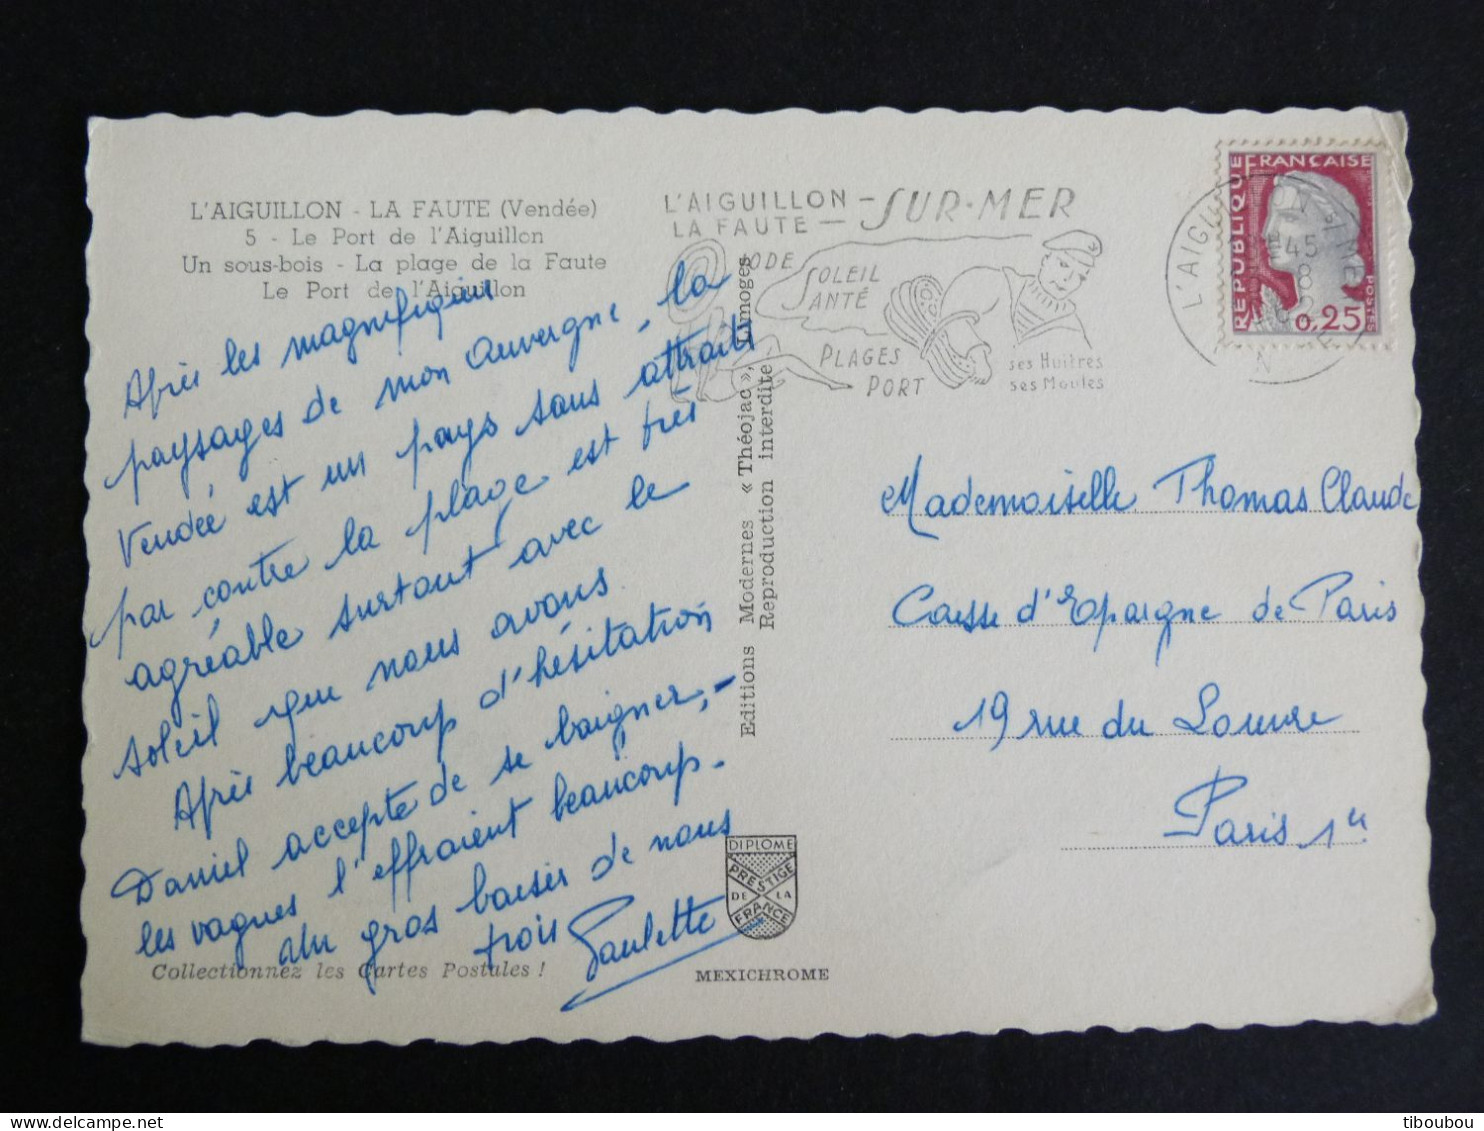 L'AIGUILLON - LA FAUTE (Vendée)
5 - Le Port de l'Aiguillon
Un sous-bois - La plage de la Faute
Le Port de l'Aiguillon
Après les magnifiques
paysages de mon Auvergne, la
Vendée est un pays sans attraits
par contre la plage est très
agréable surtout avec le
soleil que nous avons.
Après beaucoup d'hésitation
Daniel accepte de se baigner, -
les vagues l'effraient beaucoup.
Un gros baiser de nous
trois Paulette
Collectionnez les Cartes Postales !
Editions Modernes « Théojac », Limoges
Reproduction interdite
DIPLOME
PRESTIGE
DE LA
FRANCE
MEXICHROME
L'AIGUILLON - SUR-MER
LA FAUTE -
SOLEIL
SANTÉ
PLAGES
PORT
ses Huîtres
ses Moules
REPUBLIQUE FRANÇAISE
POSTES
0,25
45
8
Mademoiselle Thomas Claude
Caisse d'Epargne de Paris
19 rue du Louvre
Paris 1er
tiboubou